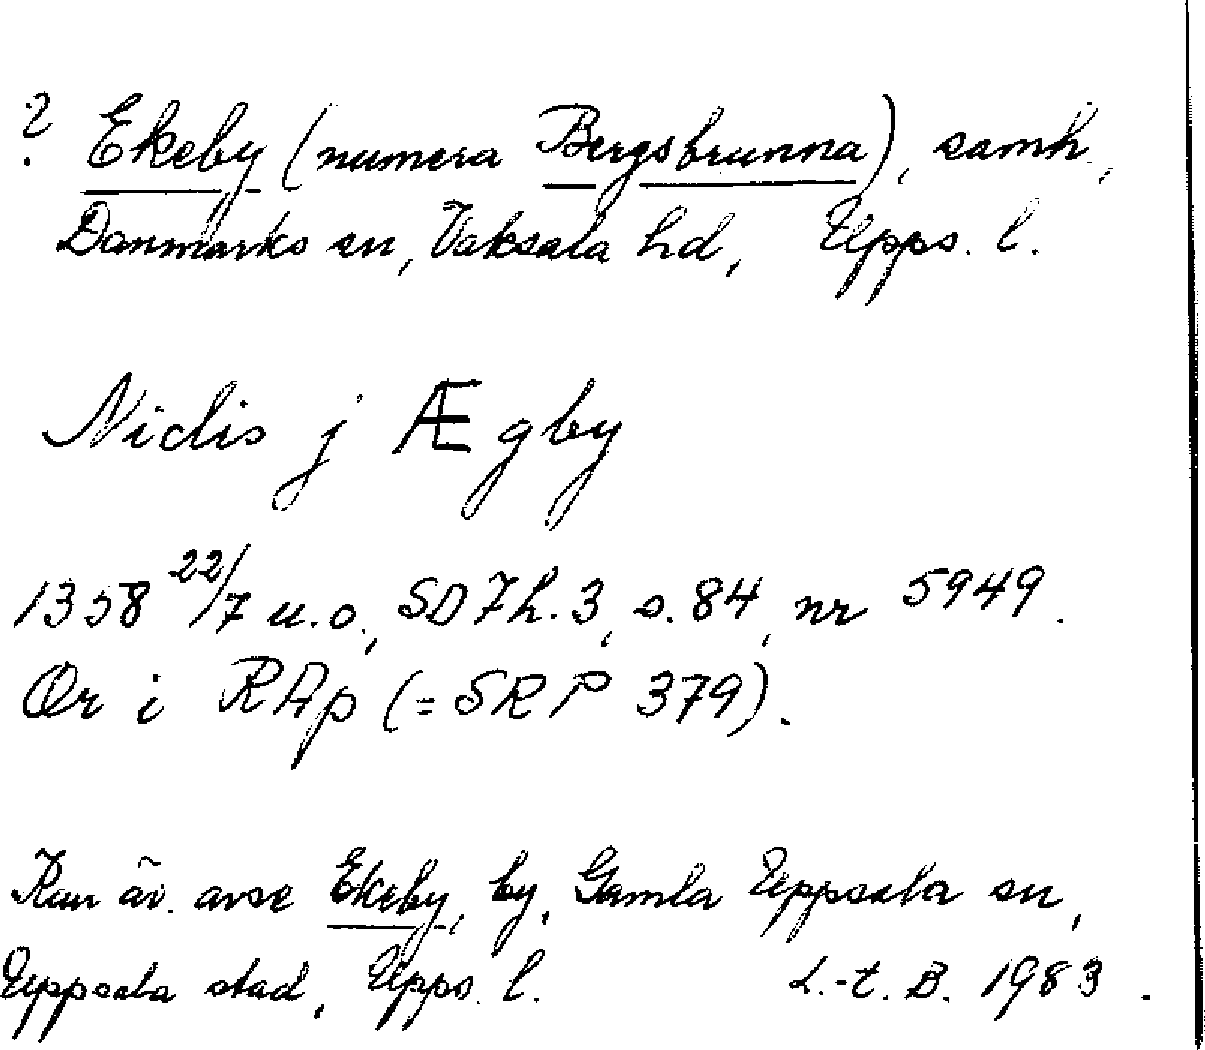 ? Ekeby (numera Bergsbrunna), samh.,
Danmarks sn, Vaksala hd, Upps. l.
Niclis j Ægby
1358 22/7 u.o., SD 7 h. 3, s. 84, nr 5949.
Or i RAp (= SRP 379).
Kan äv. avse Ekeby, by, Gamla Uppsala sn,
Uppsala stad, Upps. l. L.-t. B. 1983.